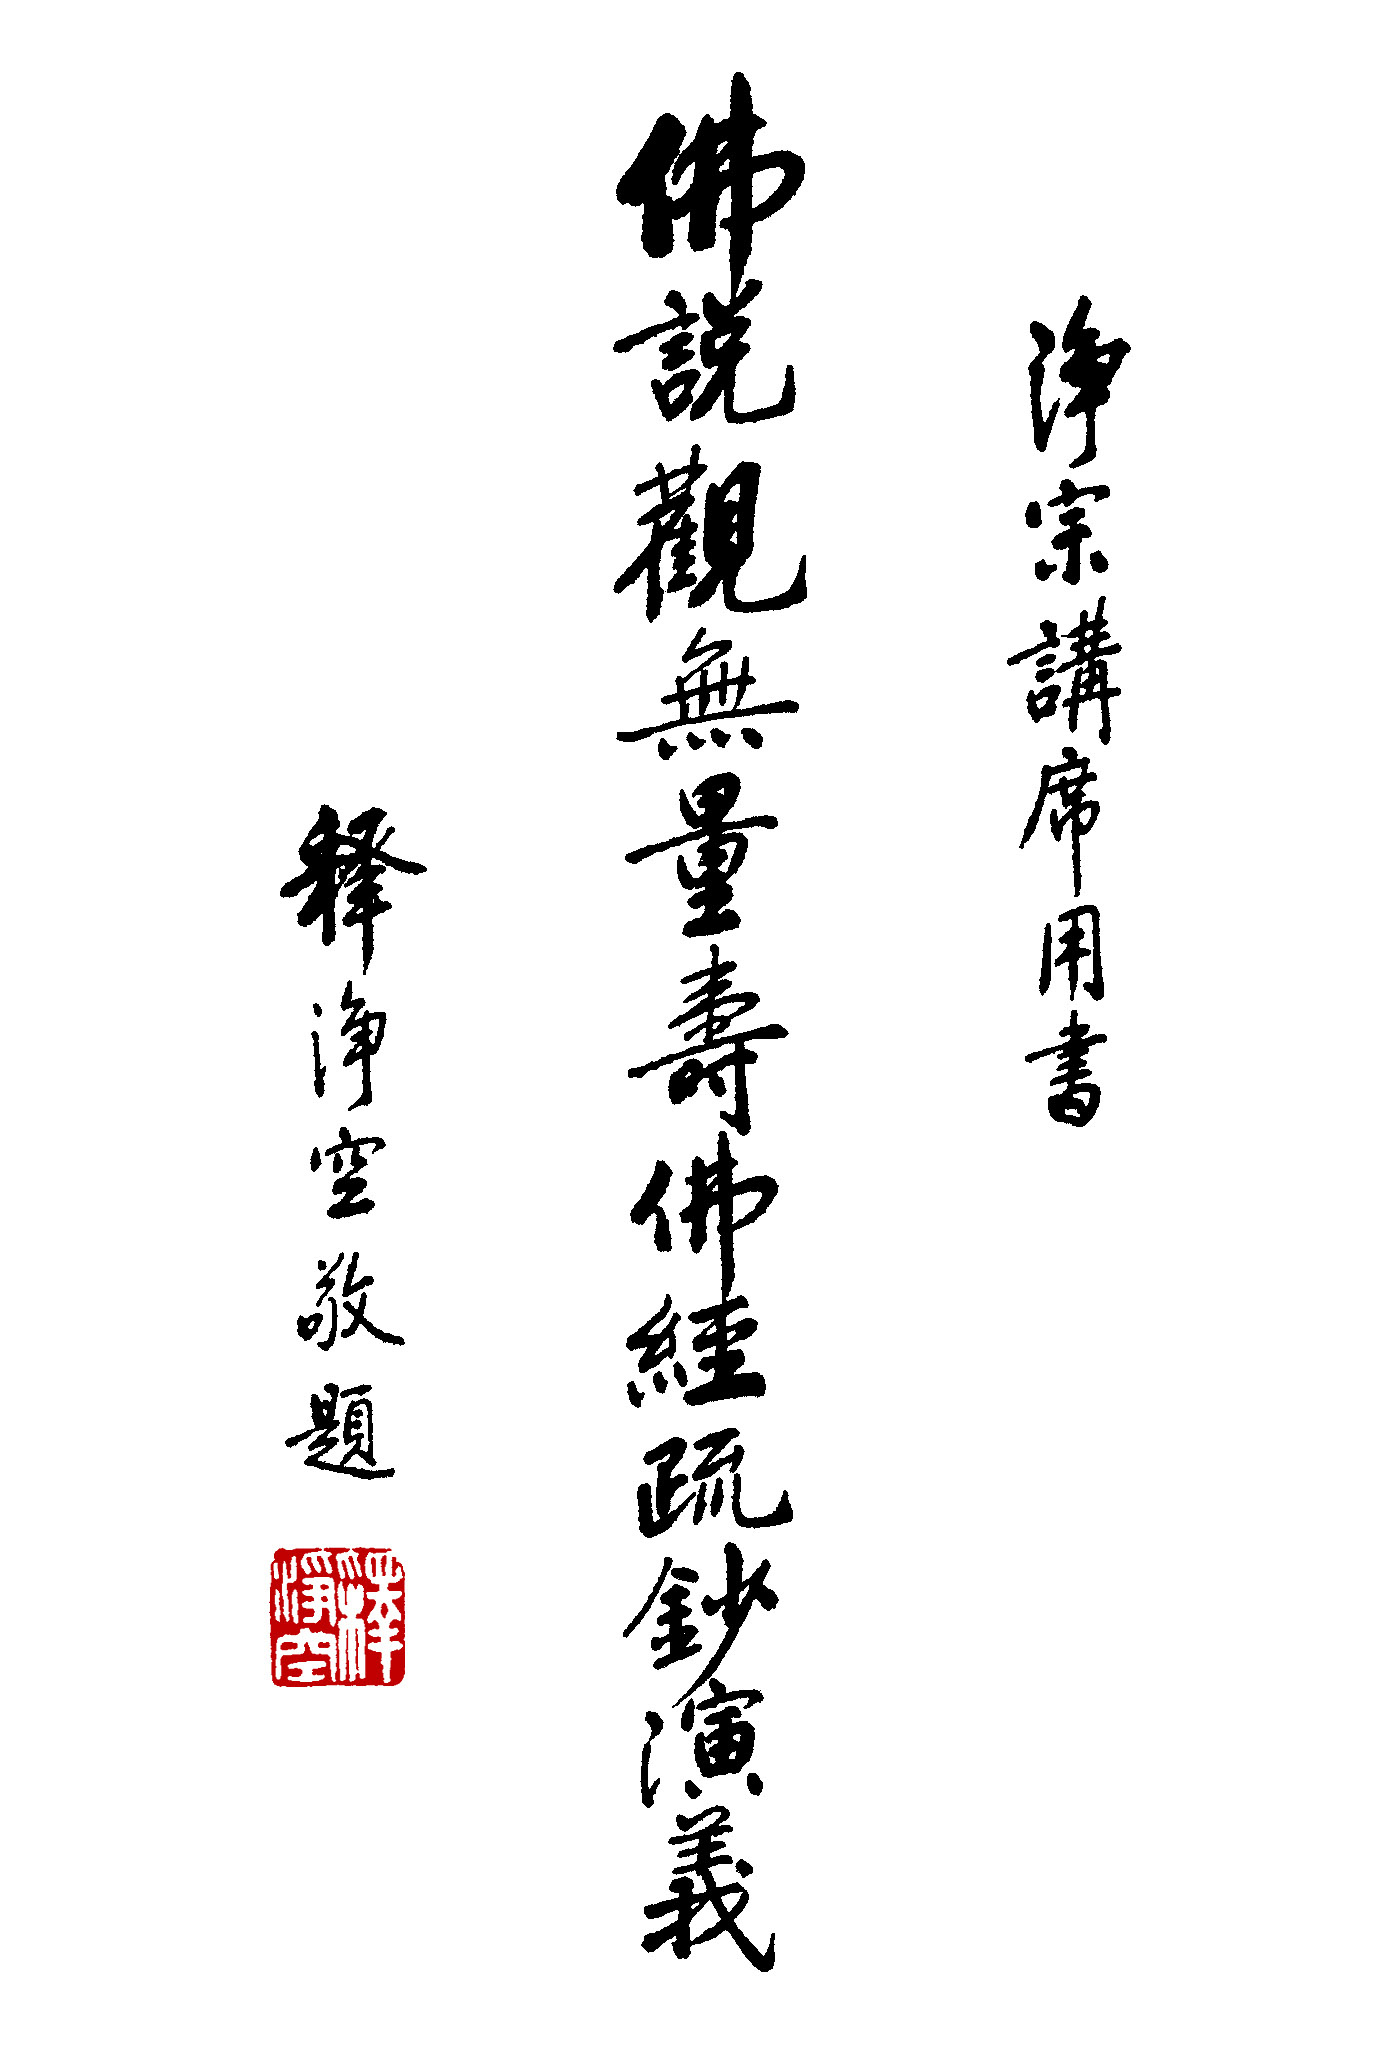 淨宗講席用書
佛說觀無量壽佛經疏鈔演義
釋淨空敬題
釋淨空